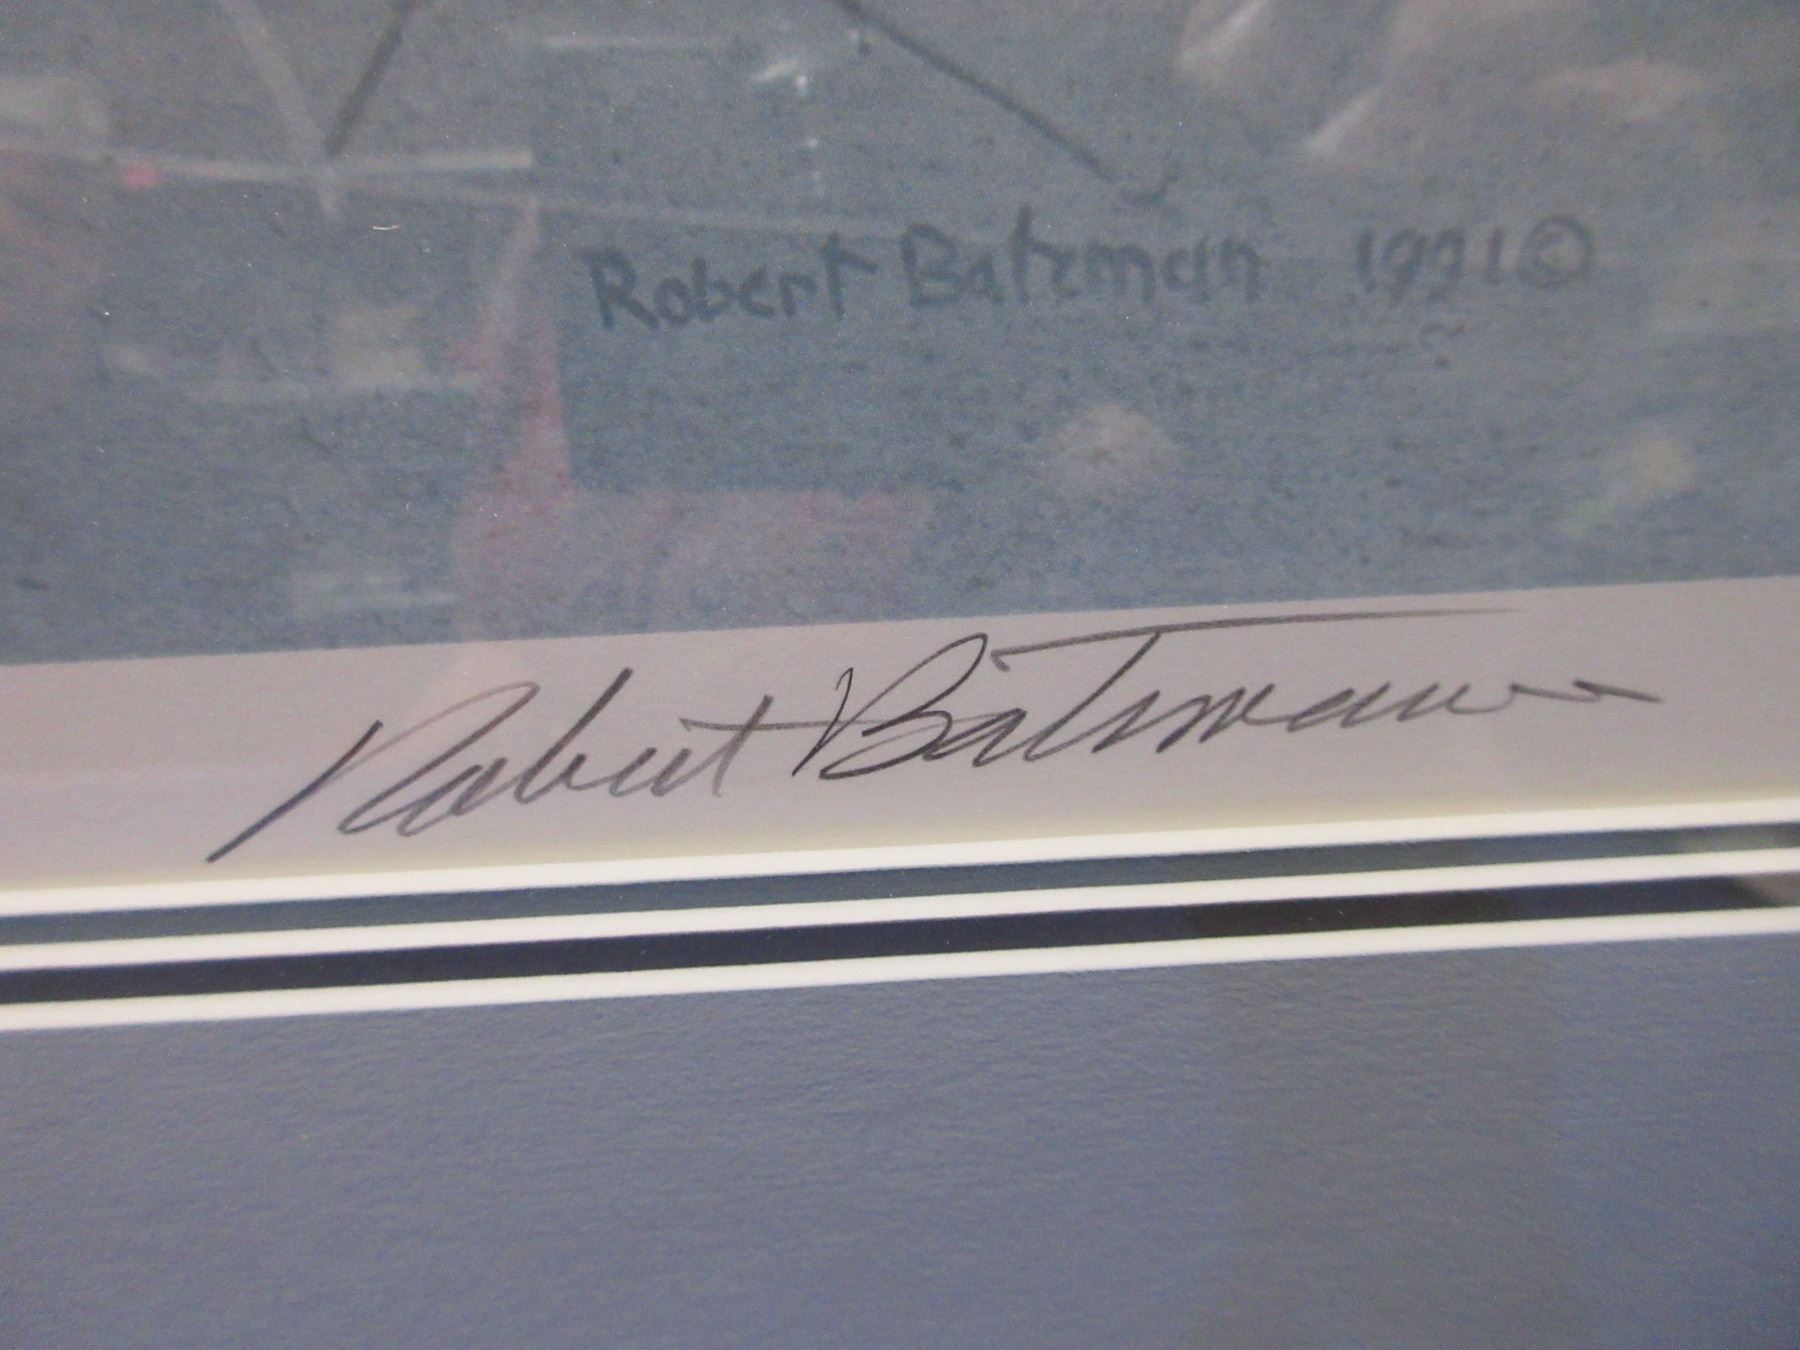 Robert Bateman 1991 ©
Robert Bateman